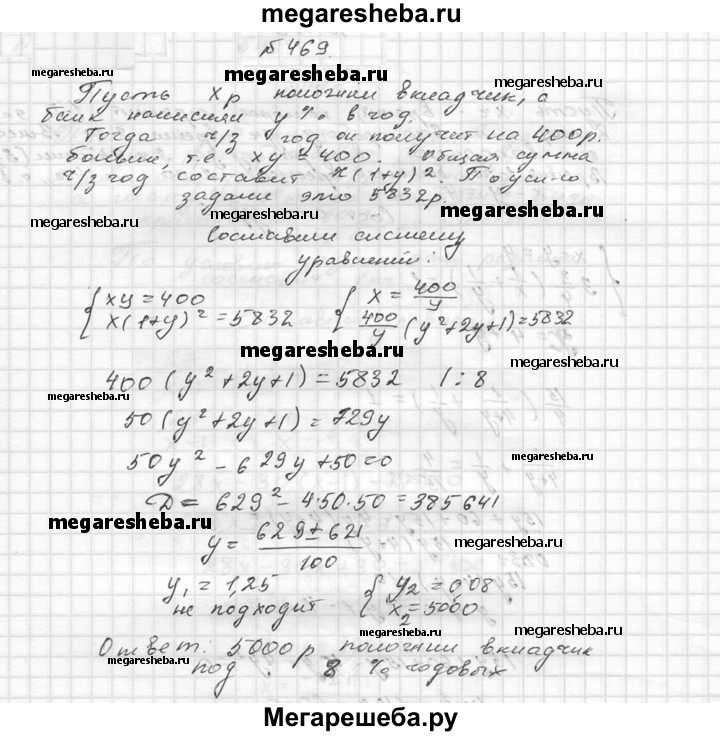 megaresheba.ru
№ 469.
megaresheba.ru
megaresheba.ru
megaresheba.ru
Пусть x р положил вкладчик, а
банк начислял y % в год.
megaresheba.ru
Тогда ч/з год он получит на 400р.
больше, т.е. xy = 400. Общая сумма
ч/з год составит x(1+y)². По усл-ю
задачи это 5832р.
megaresheba.ru
megaresheba.ru
megaresheba.ru
Составим систему
уравнений:
{ xy = 400 { x = 400/y
x(1+y)² = 5832 400/y (y²+2y+1) = 5832
megaresheba.ru
megaresheba.ru
400 (y² + 2y + 1) = 5832 / : 8
50 (y² + 2y + 1) = 729y
megaresheba.ru
50y² - 629y + 50 = 0
D = 629² - 4·50·50 = 385641
megaresheba.ru
y = 629 ± 621 / 100
megaresheba.ru
y₁ = 1,25 { y₂ = 0,08
не подходит x₂ = 5000
megaresheba.ru
megaresheba.ru
Ответ: 5000 р положил вкладчик
под 8 % годовых
megaresheba.ru
Мегарешеба.ру